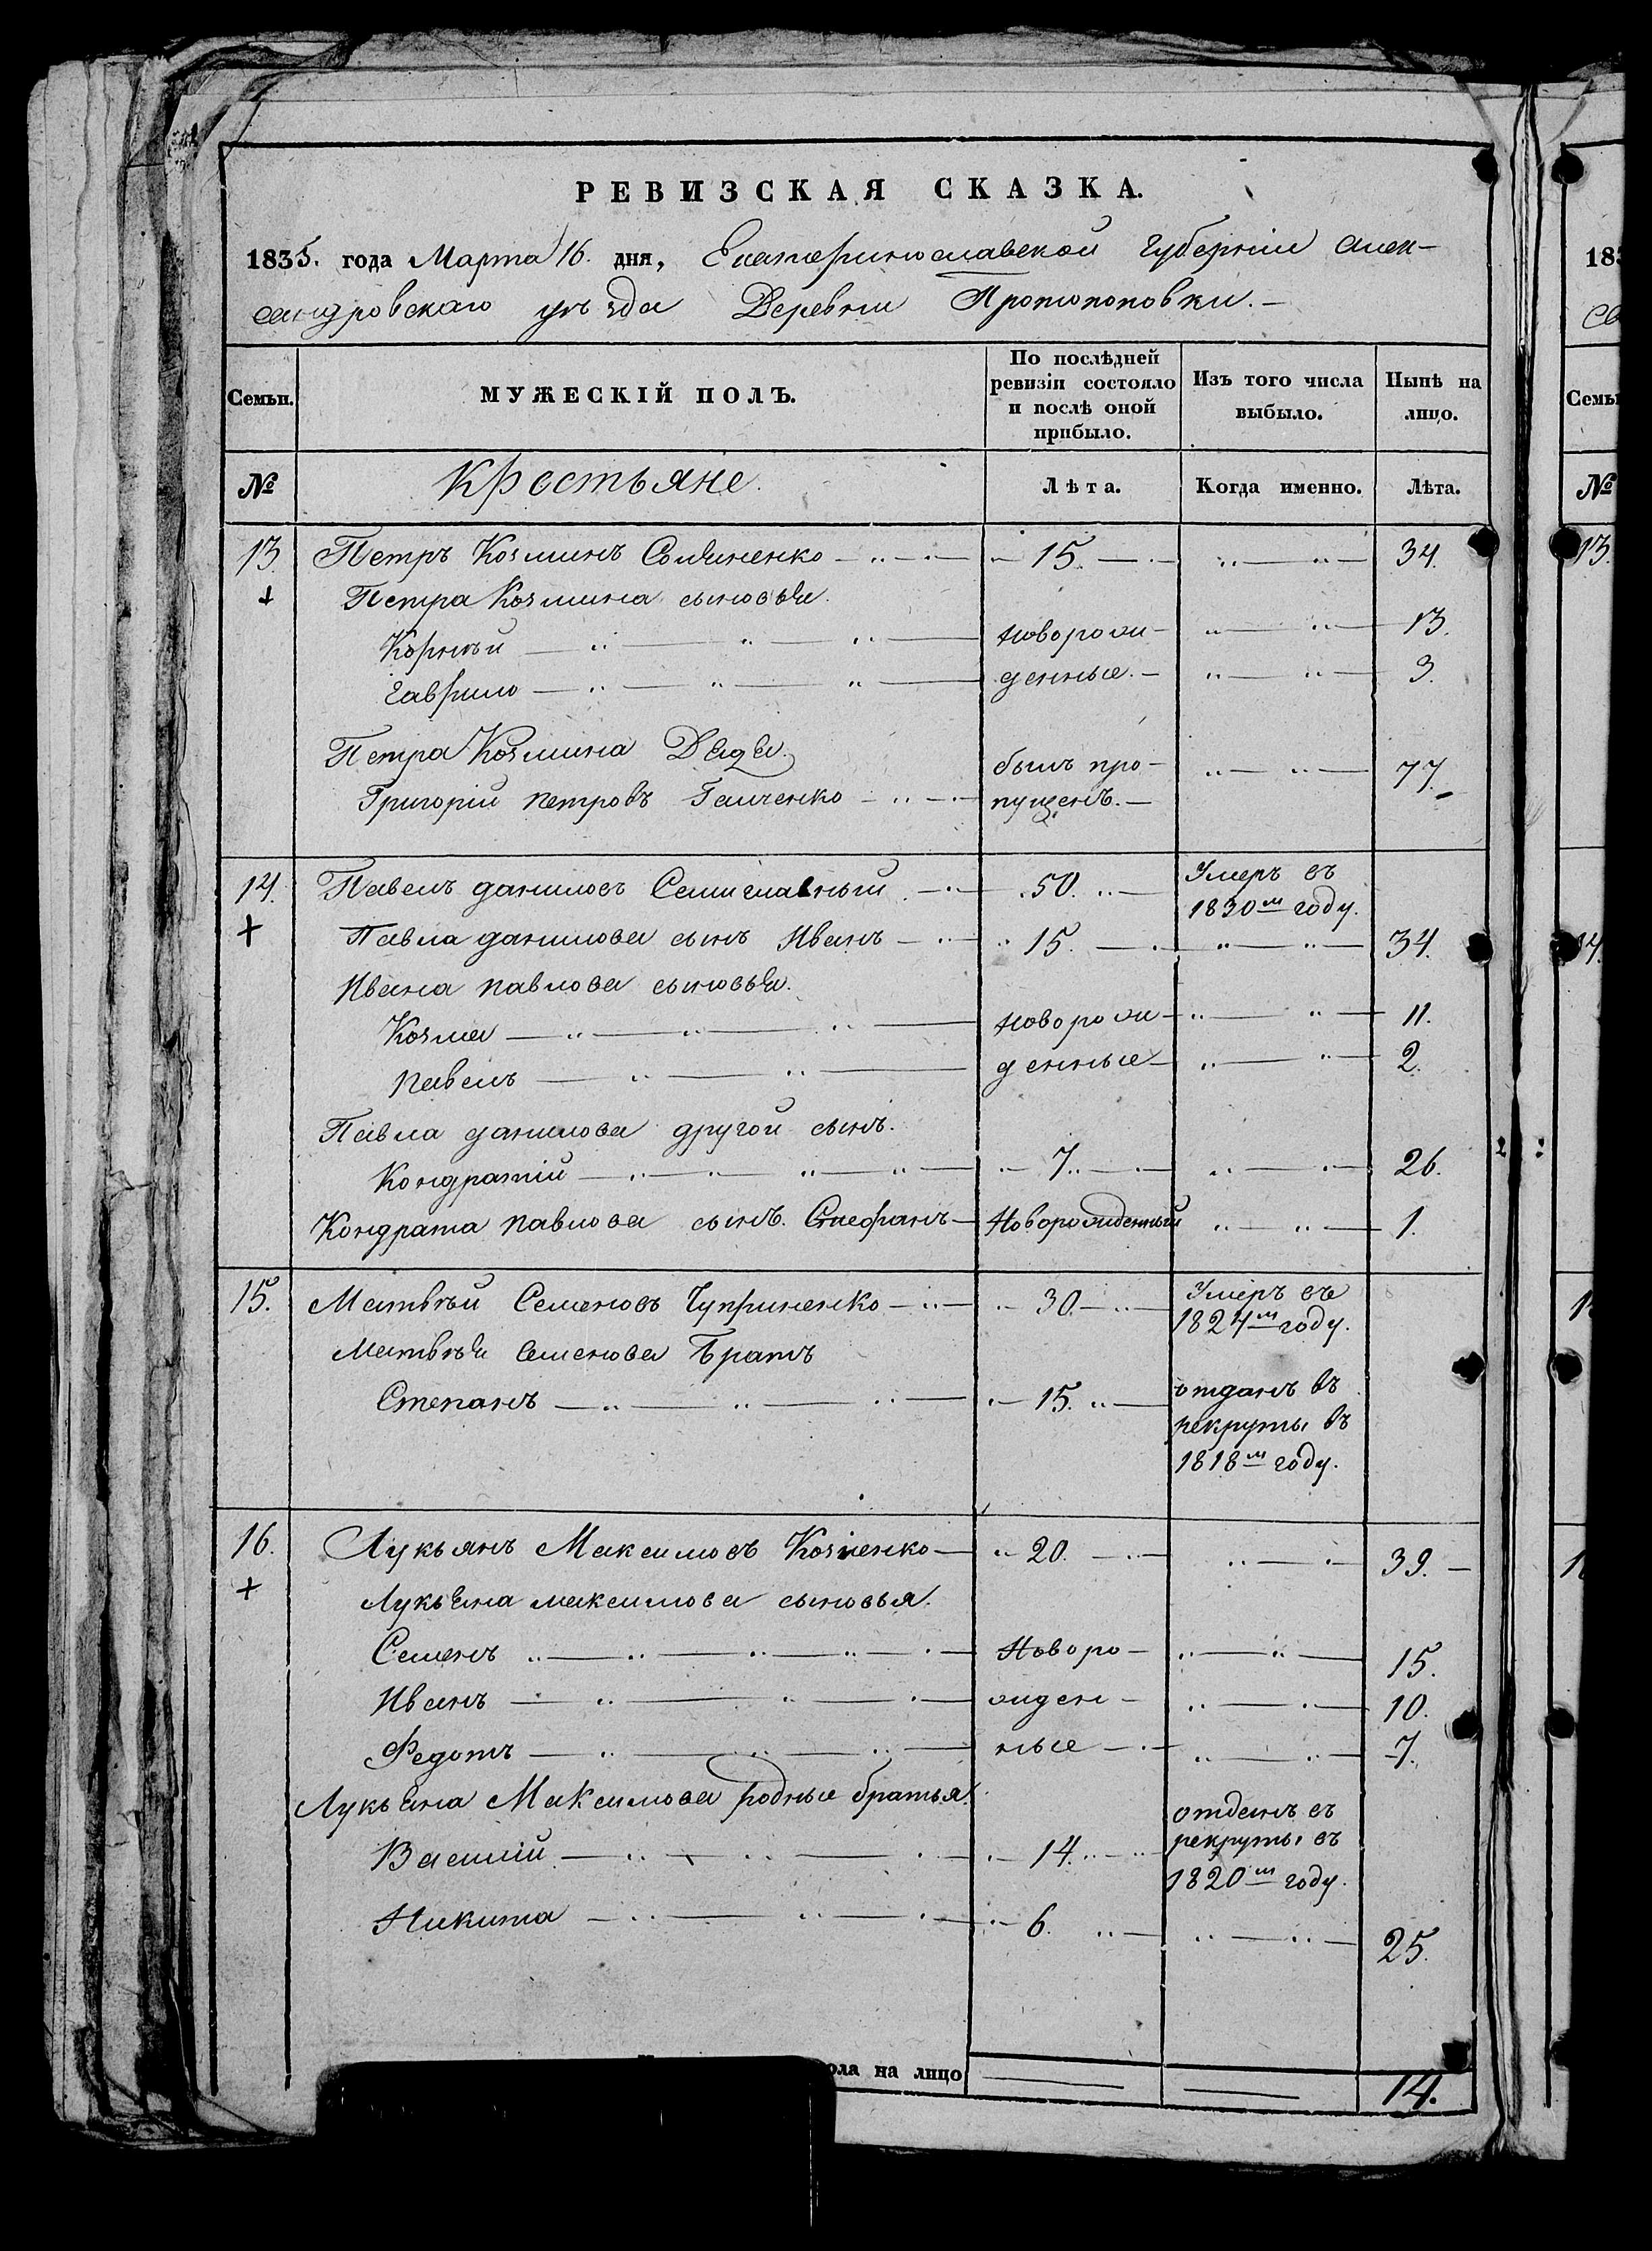 РЕВИЗСКАЯ СКАЗКА.
1835. года Марта 16. дня, Екатеринославской Губерніи Алек-
сандровскаго уѣзда Деревни Протопоповки.
Семьи.
МУЖЕСКІЙ ПОЛЪ.
По послѣдней ревизіи состояло и послѣ оной прибыло.
Изъ того числа выбыло.
Нынѣ на лицо.
№ Крестьяне Лѣта. Когда именно. Лѣта.
13 Петръ Козминъ 15. 34.
+ Петра Козмина сыновья.
Корнѣй новорож- 13.
Гаврило денные. 3.
Петра Козмина Дядя
Григорій Петровъ Ганченко былъ про-пущенъ. 77.
14. Павелъ Даниловъ Семиглавный 50. Умеръ въ 1830м году.
+ Павла Данилова сынъ Иванъ 15. 34.
Ивана Павлова сыновья.
Козма новорож- 11.
Павелъ денные 2.
Павла Данилова другой сынъ.
Кондратій 7. 26.
Кондрата Павлова сынъ. Стефанъ Новорожденный 1.
15. Матвѣй Семеновъ Чуприненко 30. Умеръ въ 1824м году.
Матвѣя Семенова Братъ
Степанъ 15. отданъ въ рекруты въ 1818м году.
16. Лукьянъ Максимовъ 20. 39.
+ Лукьяна Максимова сыновья.
Семенъ Новоро- 15.
Иванъ жден- 10.
Федотъ ные 7.
Лукьяна Максимова родные братья.
Василій 14. отданъ въ рекруты въ 1820м году.
Никита 6. 25.
ола на лицо 14.
183
Семьи
№
13.
14.